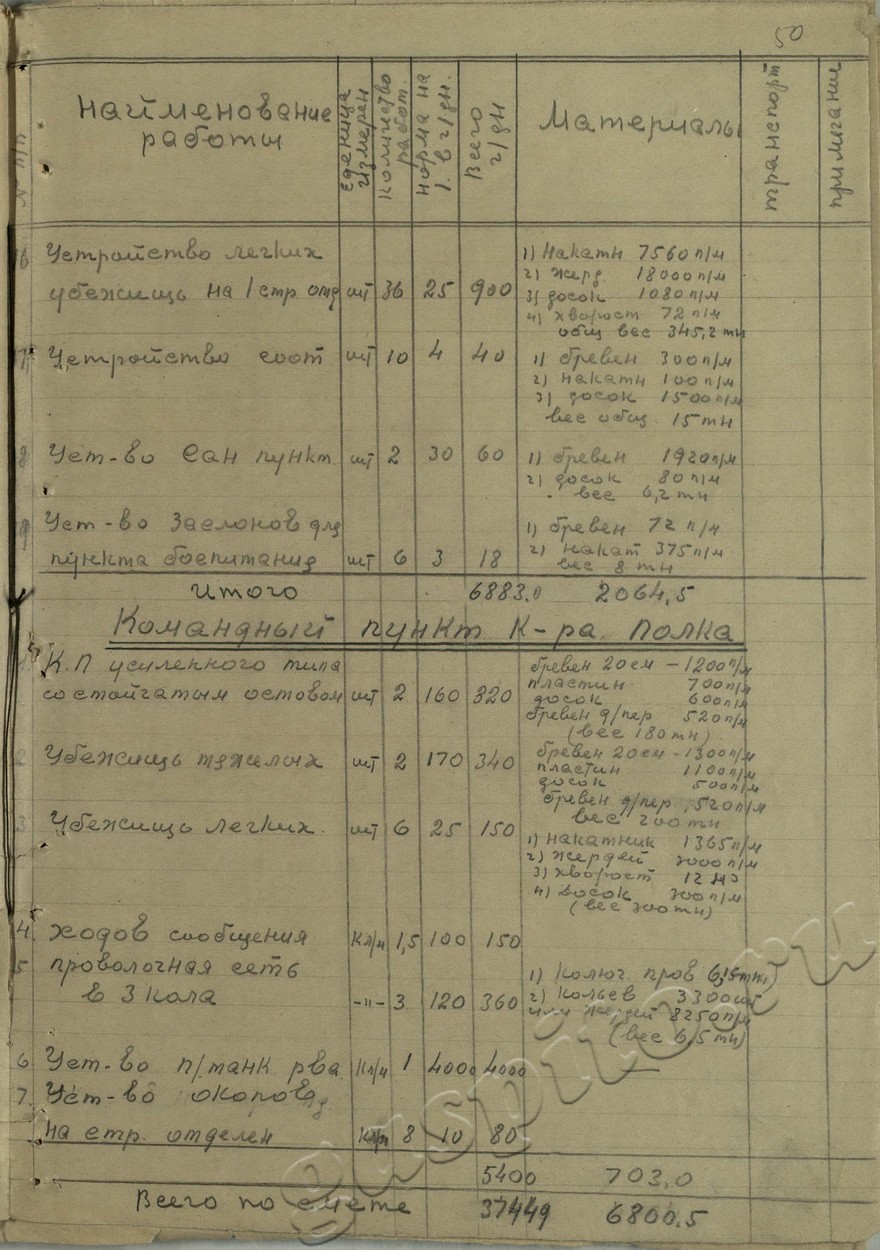 50
N п/п Найменование работы Еденица измерен Количество работ. Норма на 1 в ч/дн. Всего ч/дн Материалы транспорт примечание
6 Устройство легких
убежищь на 1 стр отд шт 36 25 900
1) Накатн 7560 п/м
2) жерд. 18000 п/м
3) досок 1080 п/м
4) хворост 72 п/м
общ вес 345,2 тн
7 Устройство соот шт 10 4 40
1) бревен 300 п/м
2) накатн 100 п/м
3) досок 1500 п/м
вес общ. 15 тн
8 Уст-во Сан пункт. шт 2 30 60
1) бревен 1920 п/м
2) досок 80 п/м
вес 6,2 тн
9 Уст-во Заслонов для
пункта боепитания шт 6 3 18
1) бревен 72 п/м
2) накат 375 п/м
вес 8 тн
итого 6883.0 2064,5
Командный пункт К-ра. Полка
1 К.П усиленного типа
со стойчатым остовом шт 2 160 320
бревен 20 см - 1200 п/м
пластин 700 п/м
досок 600 п/м
бревен д/пер 520 п/м
(вес 180 тн)
2 Убежищь тяжелых шт 2 170 340
бревен 20 см - 1300 п/м
пластин 1100 п/м
досок 500 п/м
бревен д/пер. 520 п/м
вес 200 тн
3 Убежищь легких. шт 6 25 150
1) накатник 1365 п/м
2) жердей 3000 п/м
3) хворост 12 м3
4) досок 300 п/м
(вес 300 тн)
4. ходов сообщения Кл/м 1,5 100 150
5 проволочная сеть
в 3 кола -"- 3 120 360
1) Колюч. пров 6,15 тн
2) Кольев 3300 шт
или жердей 8250 п/м
(вес 6,5 тн)
6 Уст-во п/танк рва Кл/м 1 4000 4000 —
7. Уст-во окопов
на стр. отделен Кл/м 8 10 80
5400 703,0
Всего по смете 37449 6800.5
gaspiko.ru